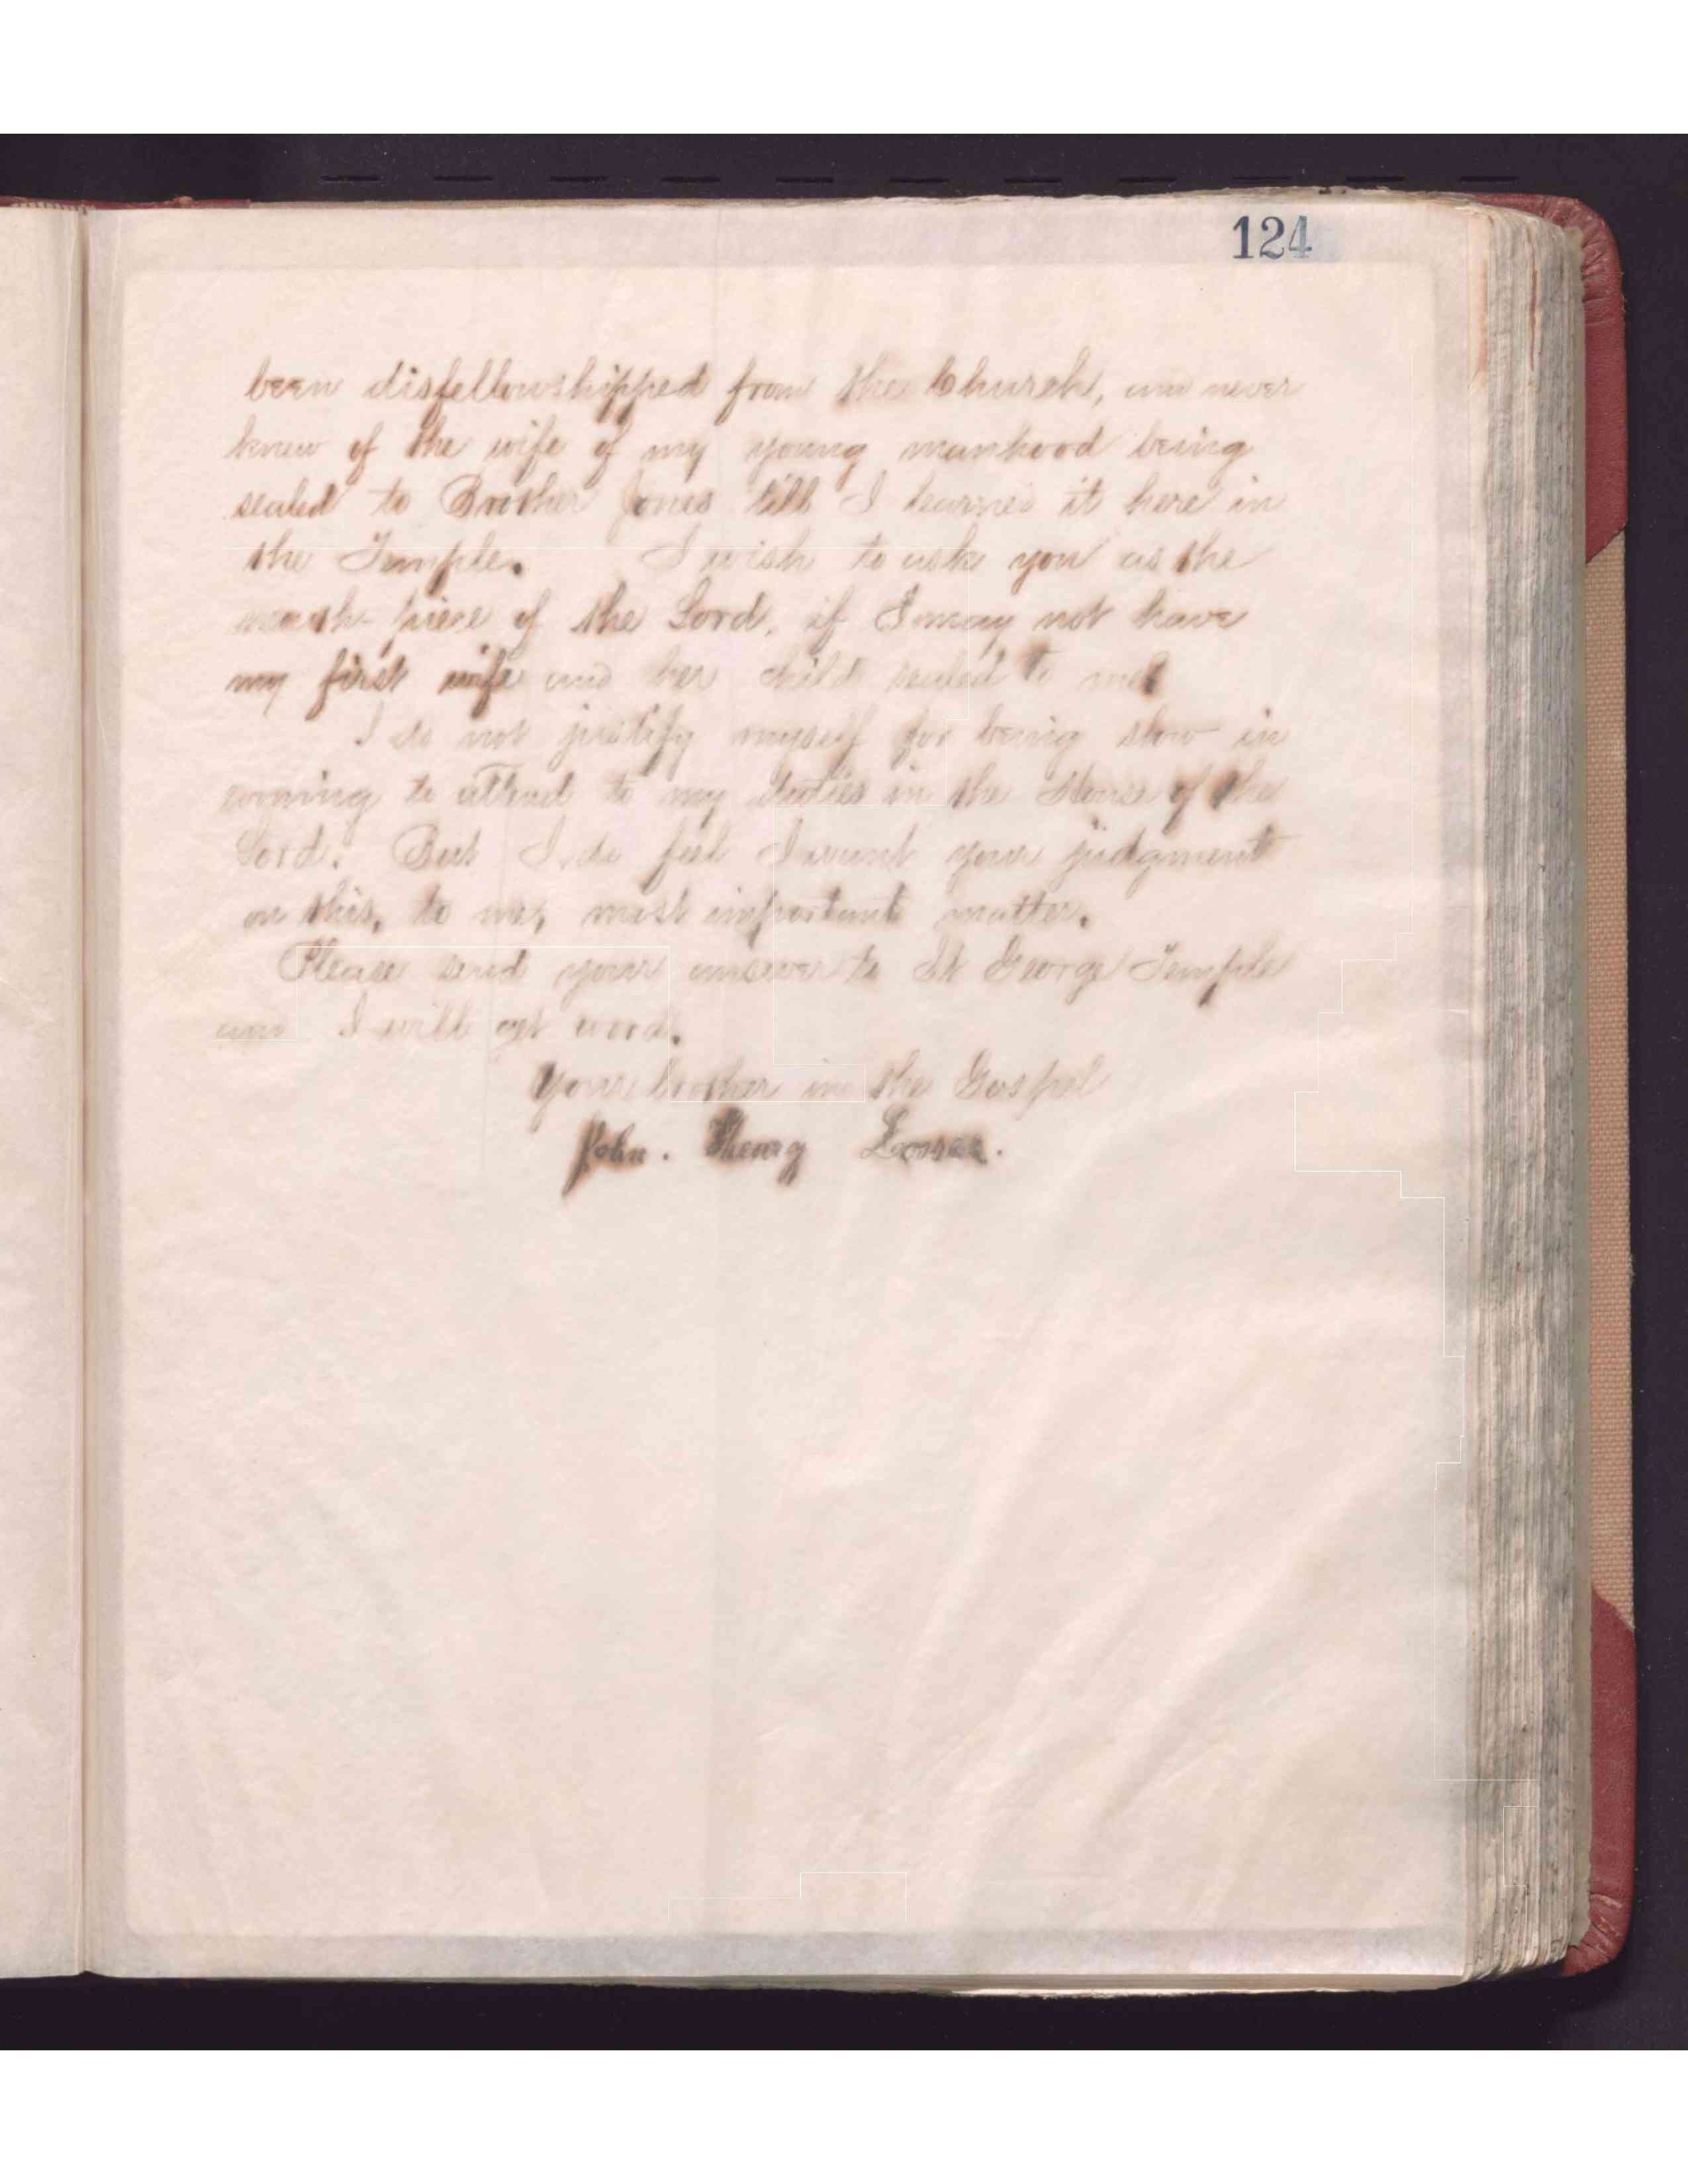 124
been disfellowshipped from the Church, and never
knew of the wife of my young manhood being
sealed to Brother Jones till I learned it here in
the Temple. I wish to ask you as the
mouth-piece of the Lord, if I may not have
my first wife and her child sealed to me?
I do not justify myself for being slow in
coming to attend to my duties in the House of the
Lord. But I do feel I want your judgment
on this, to me, most important matter.
Please send your answer to St George Temple
and I will get word.
Your brother in the Gospel
John. Henry